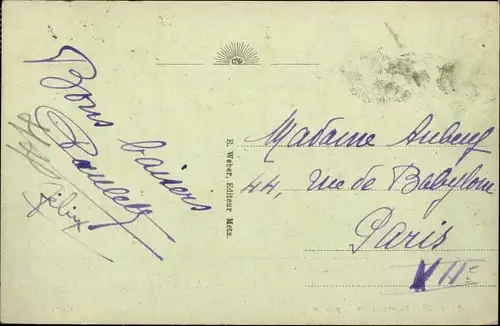 Bons baisers
Paulette
Félix
E. Weber, Editeur Metz.
Madame Auberg
44, rue de Babylone
Paris
VIIe